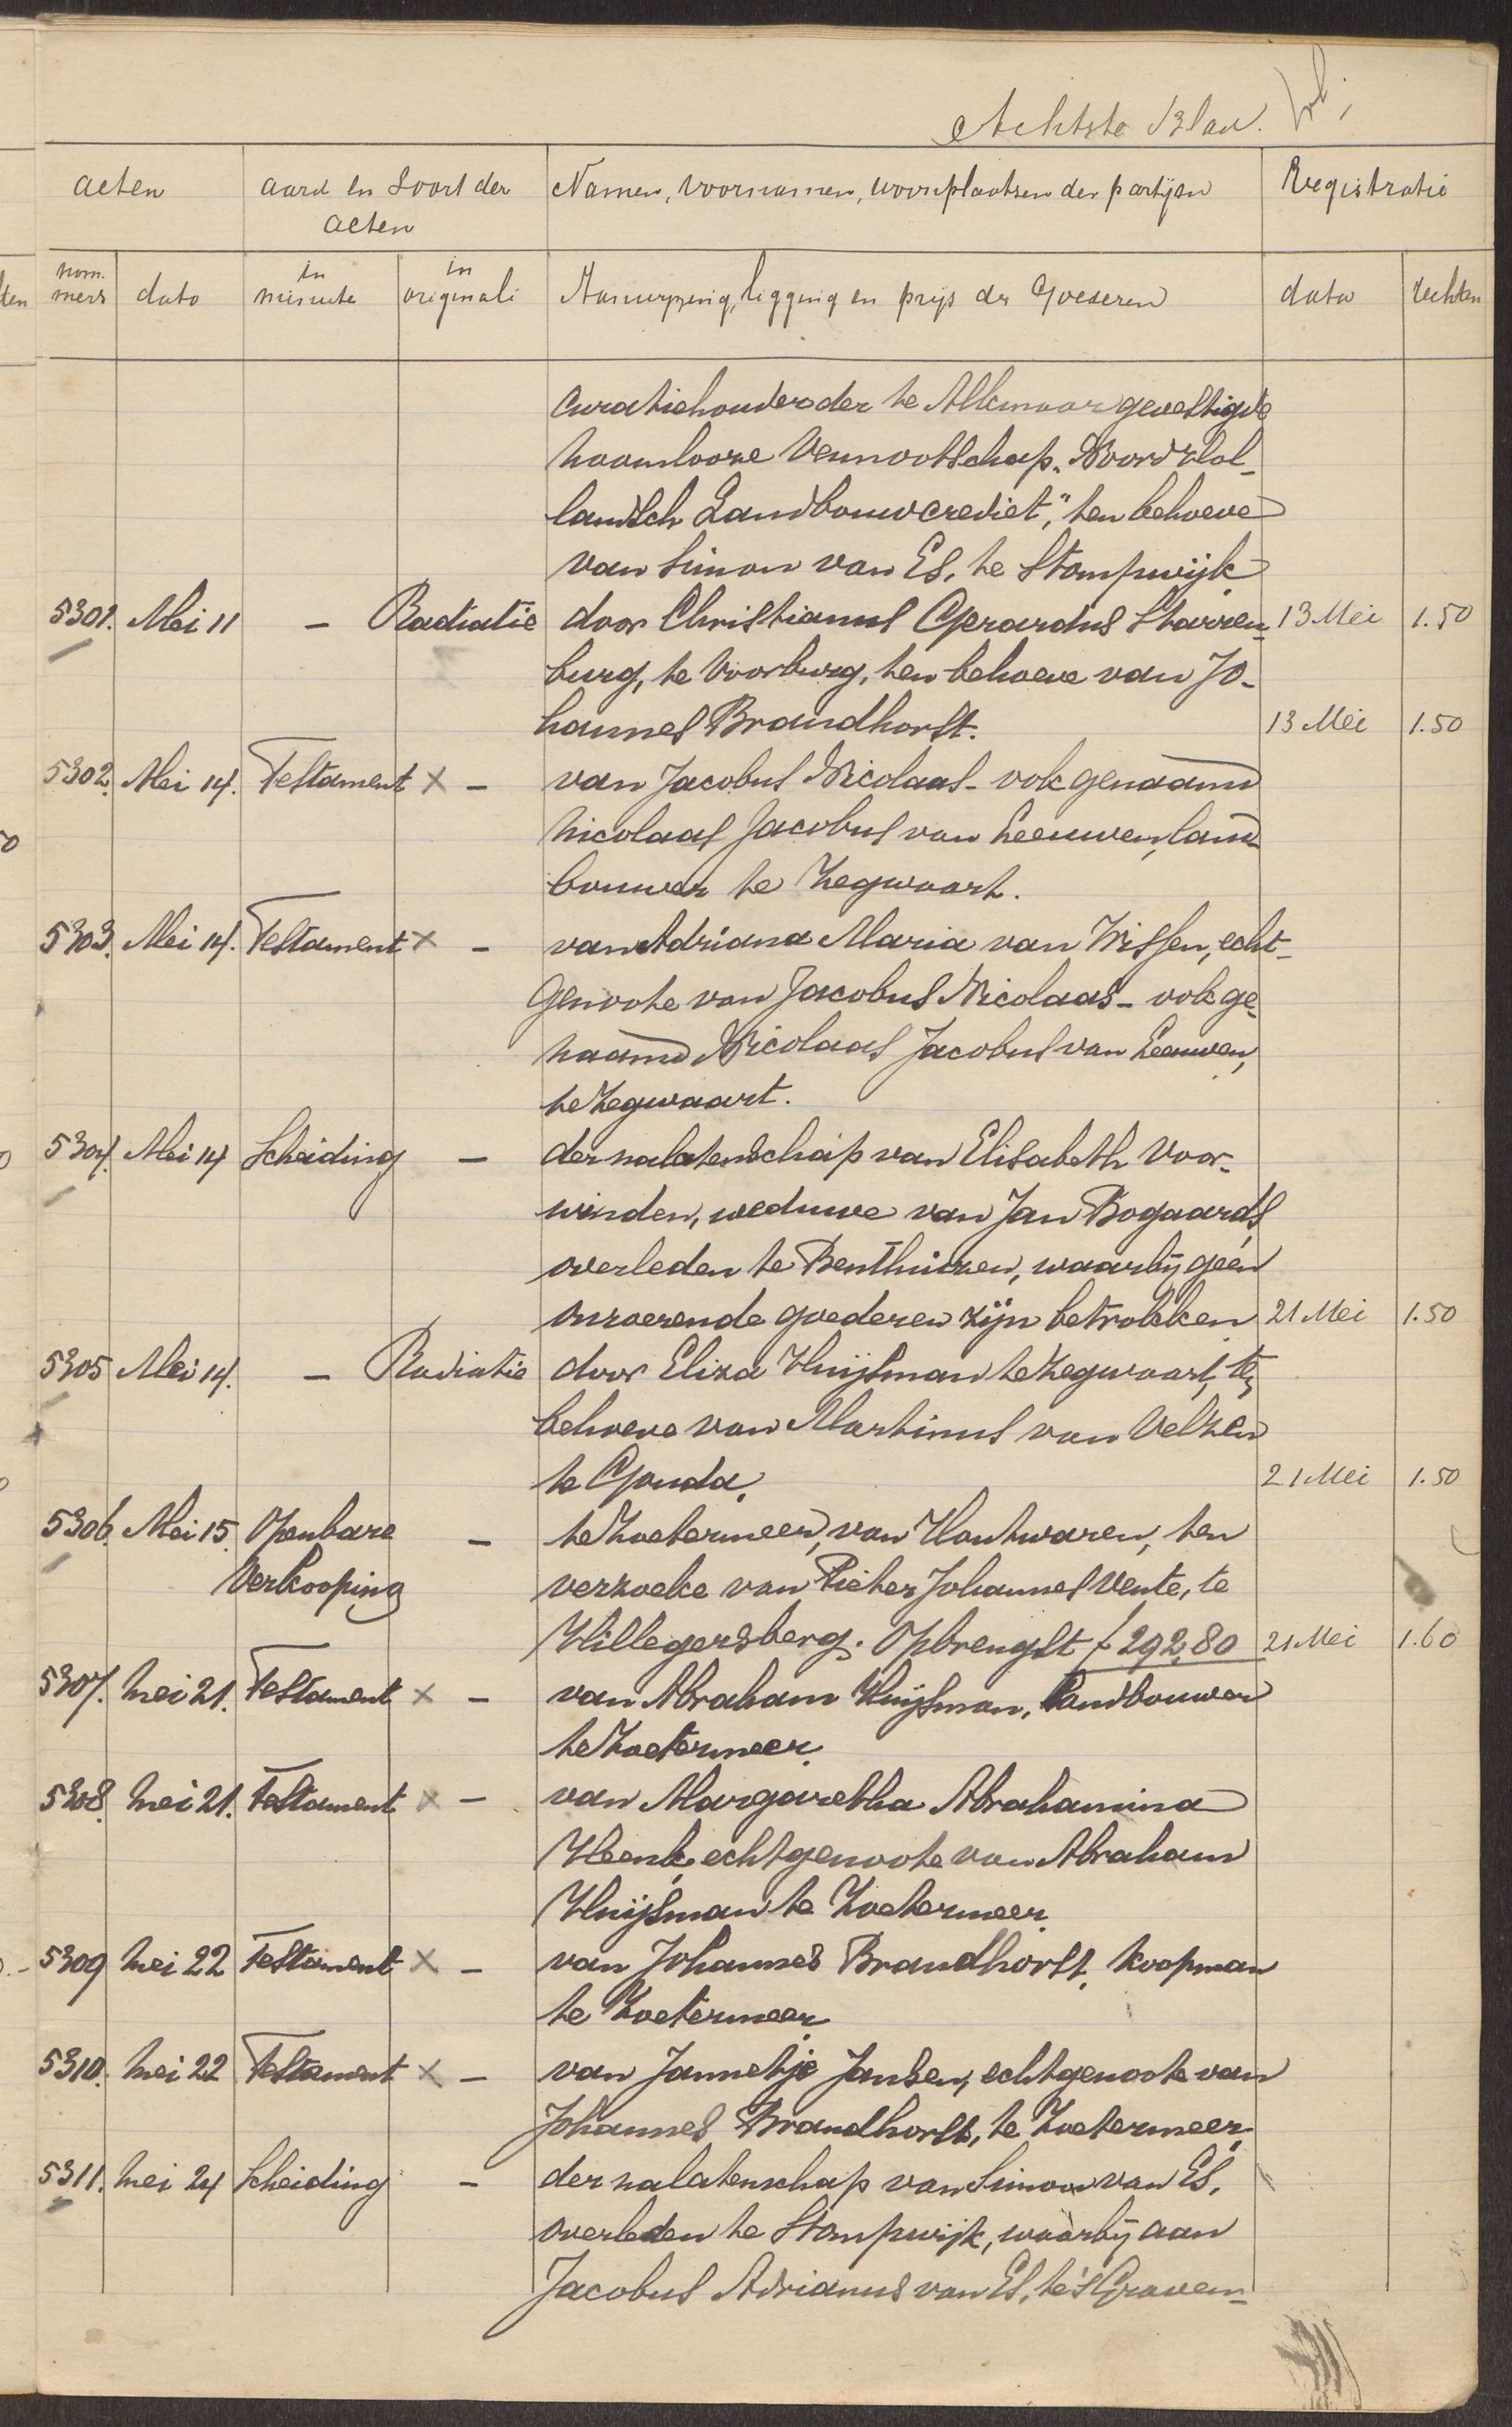 Achtste Blad.
acten
aard en Soort der acten
Namen, voornamen, woonplaatsen der partijen
Registratie
nommers
dato
in minute
in originali
Aanwijzing, ligging en prijs der Goederen
data
rechten
Curatiehouder der te Alkmaar gevestigde
Naamlooze Vennootschap "Noordhol-
landsch Landbouwcrediet", ten behoeve
van Simon van Es, te Stompwijk 13 Mei 1.50
5301. Mei 11 - Radiatie door Christianus Gerardus Starren-
burg, te Voorburg, ten behoeve van Jo-
hannes Brandhorst. 13 Mei 1.50
5302. Mei 14. Testament x - van Jacobus Nicolaas - ook genaamd
Nicolaas Jacobus van Leeuwen, land-
bouwer te Zegwaart.
5303. Mei 14. Testament x - van Adriana Maria van Wissen, echt-
genoote van Jacobus Nicolaas - ook ge-
naamd Nicolaas Jacobus van Leeuwen,
te Zegwaart.
5304. Mei 14 Scheiding - der nalatenschap van Elisabeth Voor-
winden, weduwe van Jan Bogaards,
overleden te Benthuizen, waarbij geen
onroerende goederen zijn betrokken 21 Mei 1.50
5305 Mei 14. - Radiatie door Eliza Huijsman te Zegwaart, ten
behoeve van Martinus van Velzen
te Gouda. 21 Mei 1.50
5306. Mei 15. Openbare - te Zoetermeer, van Houtwaren, ten
Verkooping verzoeke van Pieter Johannes Vente, te
Hillegersberg. Opbrengst f 292,80 21 Mei 1.60
5307. Mei 21. Testament x - van Abraham Huijsman, Landbouwer
te Zoetermeer.
5308. Mei 21. Testament x - van Margaretha Abrahamina
Henk, echtgenoote van Abraham
Huijsman te Zoetermeer.
5309 Mei 22 Testament x - van Johannes Brandhorst, koopman
te Zoetermeer.
5310. Mei 22 Testament x - van Jannetje Jansen, echtgenoote van
Johannes Brandhorst, te Zoetermeer.
5311. Mei 24 Scheiding - der nalatenschap van Simon van Es,
overleden te Stompwijk, waarbij aan
Jacobus Adrianus van Es, te 's Graven-